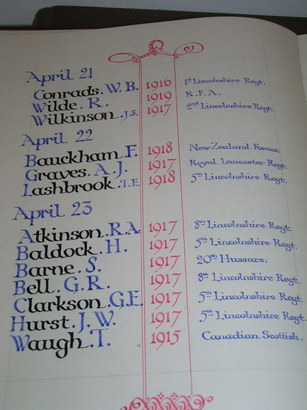 April 21
Conrads. W. B. 1916 1st Lincolnshire Regt.
Wilde. R. 1919 R.F.A.
Wilkinson. J.S. 1917 2nd Lincolnshire Regt.
April 22
Bauckham. F. 1918 New Zealand Forces.
Graves. A. J. 1917 Royal Lancaster Regt.
Lashbrook. T.E. 1918 5th Lincolnshire Regt.
April 23
Atkinson. R.A. 1917 8th Lincolnshire Regt.
Baldock. H. 1917 5th Lincolnshire Regt.
Barne. S. 1917 20th Hussars.
Bell. G. R. 1917 8th Lincolnshire Regt.
Clarkson. G.E. 1917 5th Lincolnshire Regt.
Hurst. J. W. 1917 5th Lincolnshire Regt.
Waugh. T. 1915 Canadian Scottish.